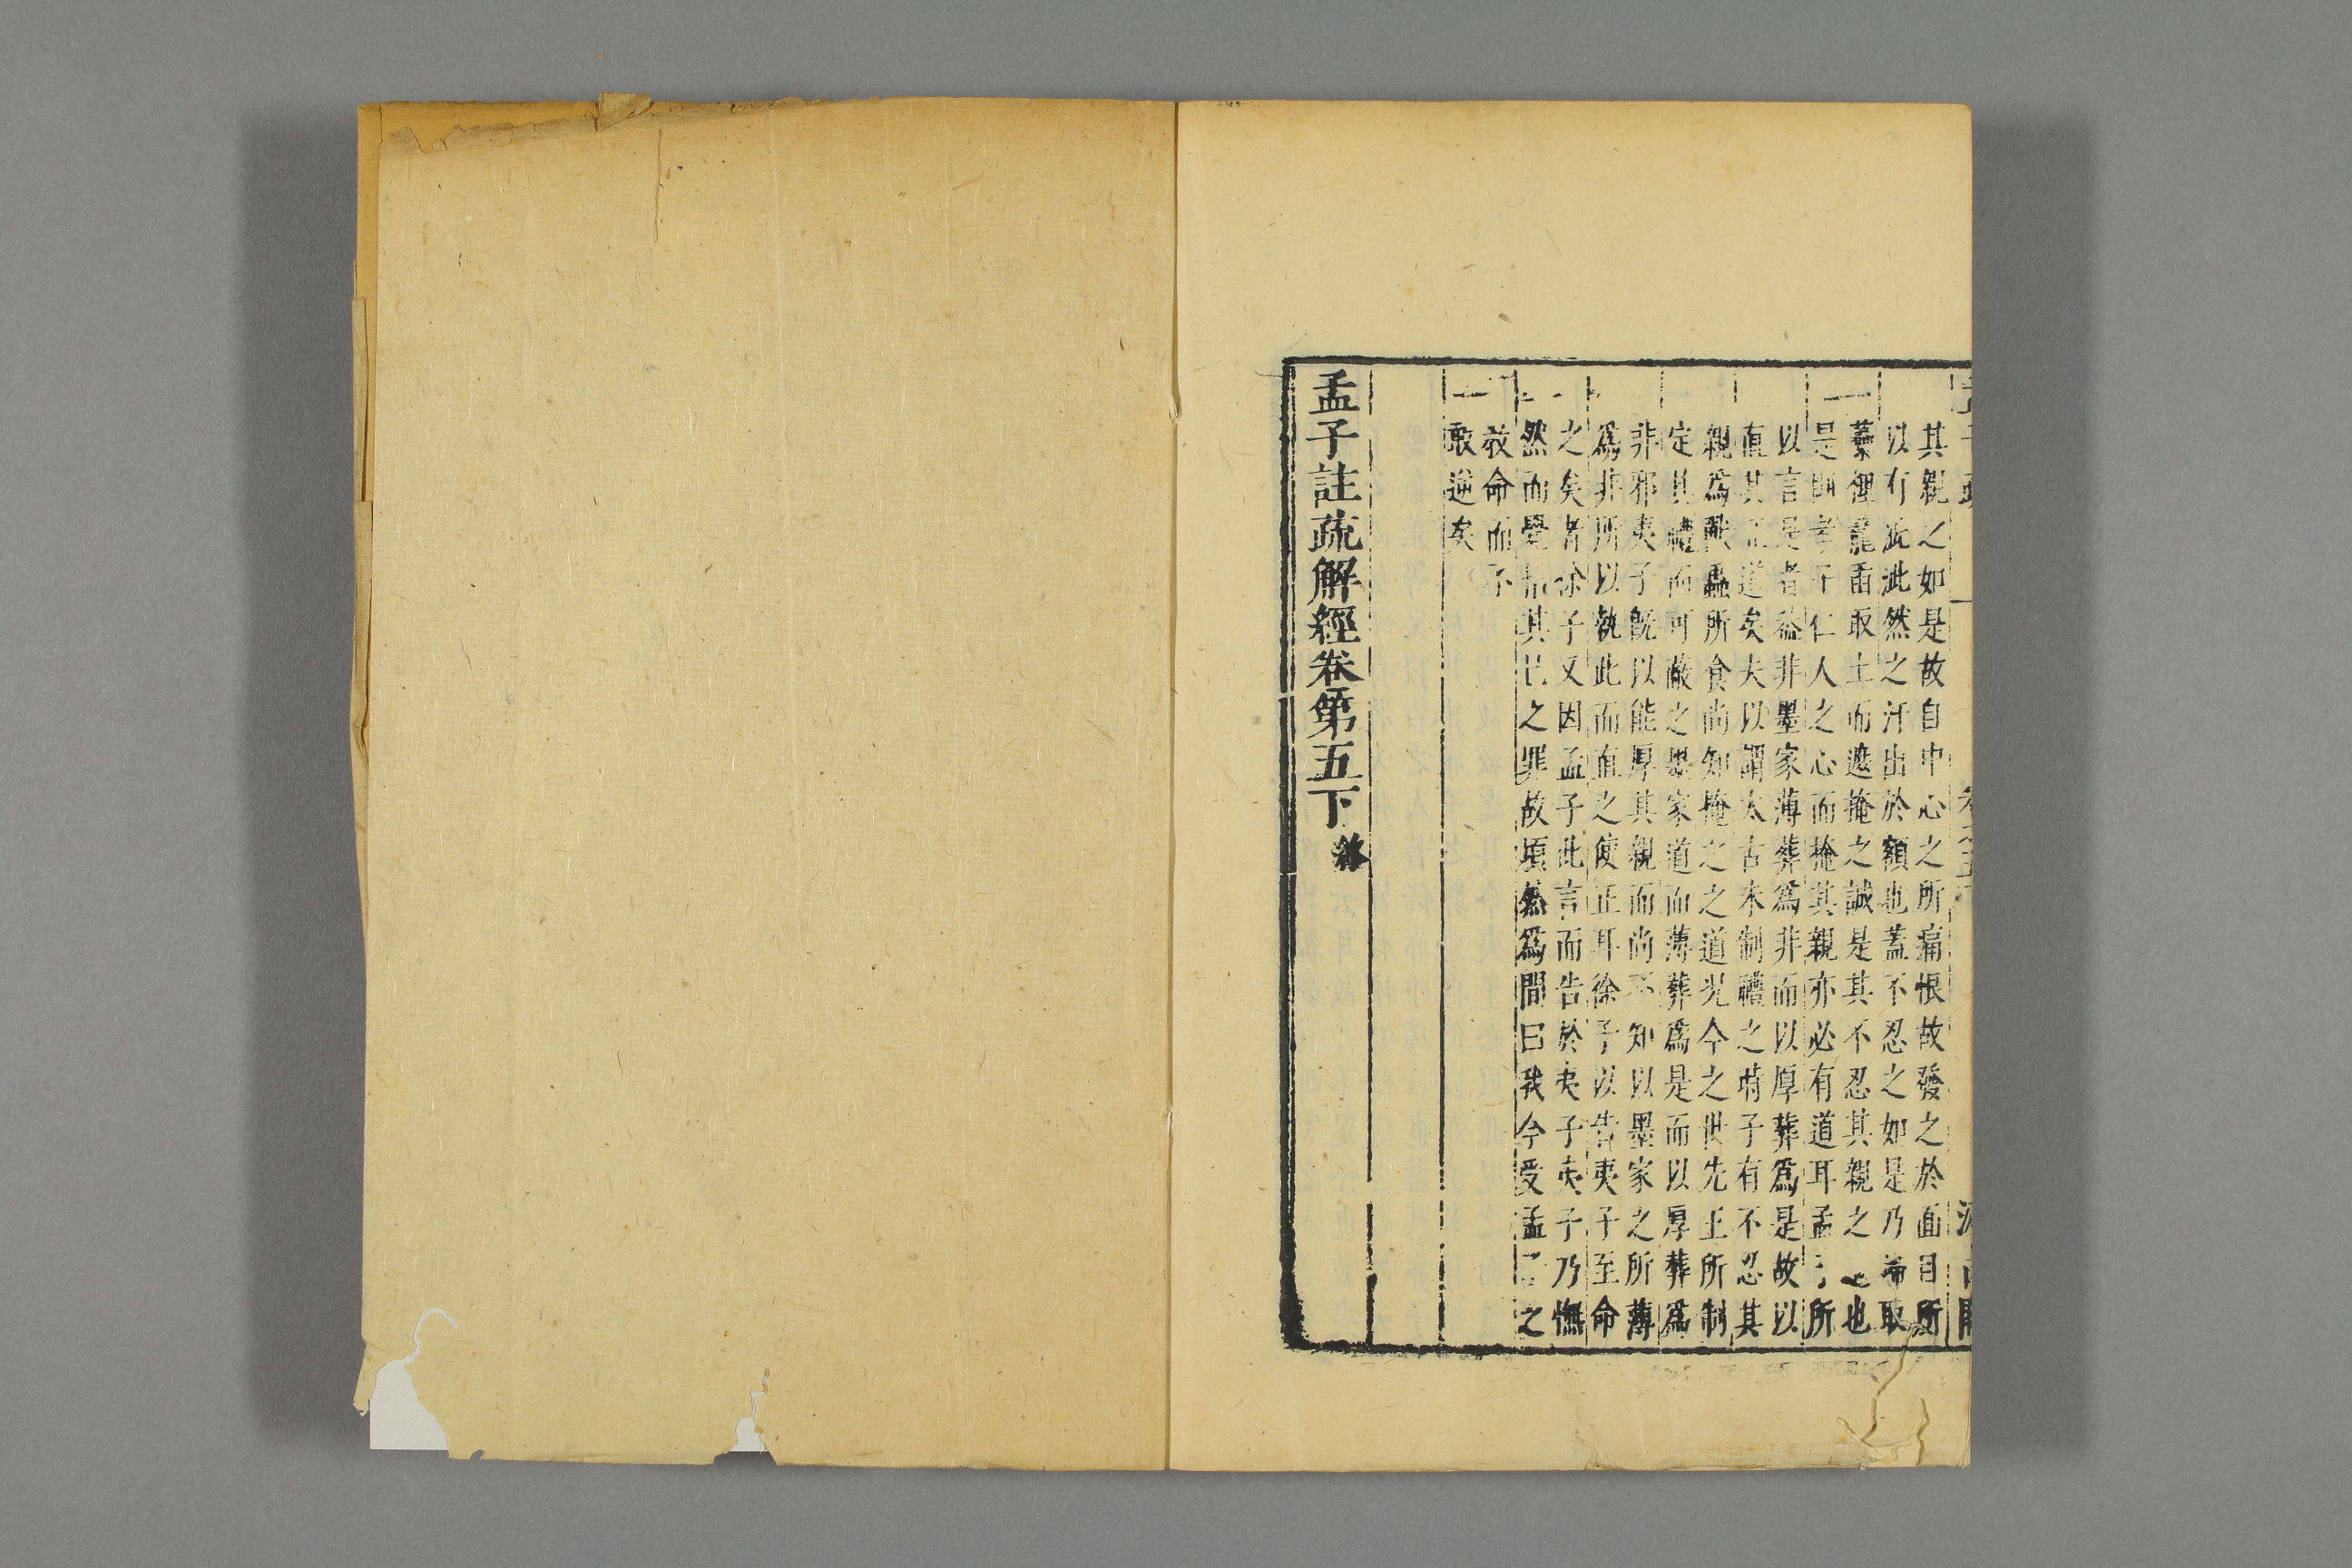 其親之如是故自中心之所痛恨故發之於面目所
以有泚泚然之汗出於額也蓋不忍之如是乃歸取
虆梩籠臿取土而遮掩之誠是其不忍其親之 也
是則孝子仁人之心而掩其親亦必有道耳孟子所
以言是者益非墨家薄葬爲非而以厚葬爲是故以
直其正道矣夫以謂太古未制禮之時子有不忍其
親爲獸蟲所食尚知掩之之道况今之世先王所制
定其禮而可蔽之墨家道而薄葬爲是而以厚葬爲
非邪夷子旣以能厚其親而尚不知以墨家之所薄
爲非所以執此而直之使正耳徐子以告夷子至命
之矣者徐子又因孟子此言而告於夷子夷子乃憮
然而覺 其已之罪故頃然爲間曰我今受孟子之
敎命而不
敢逆矣
孟子註疏解經卷第五下